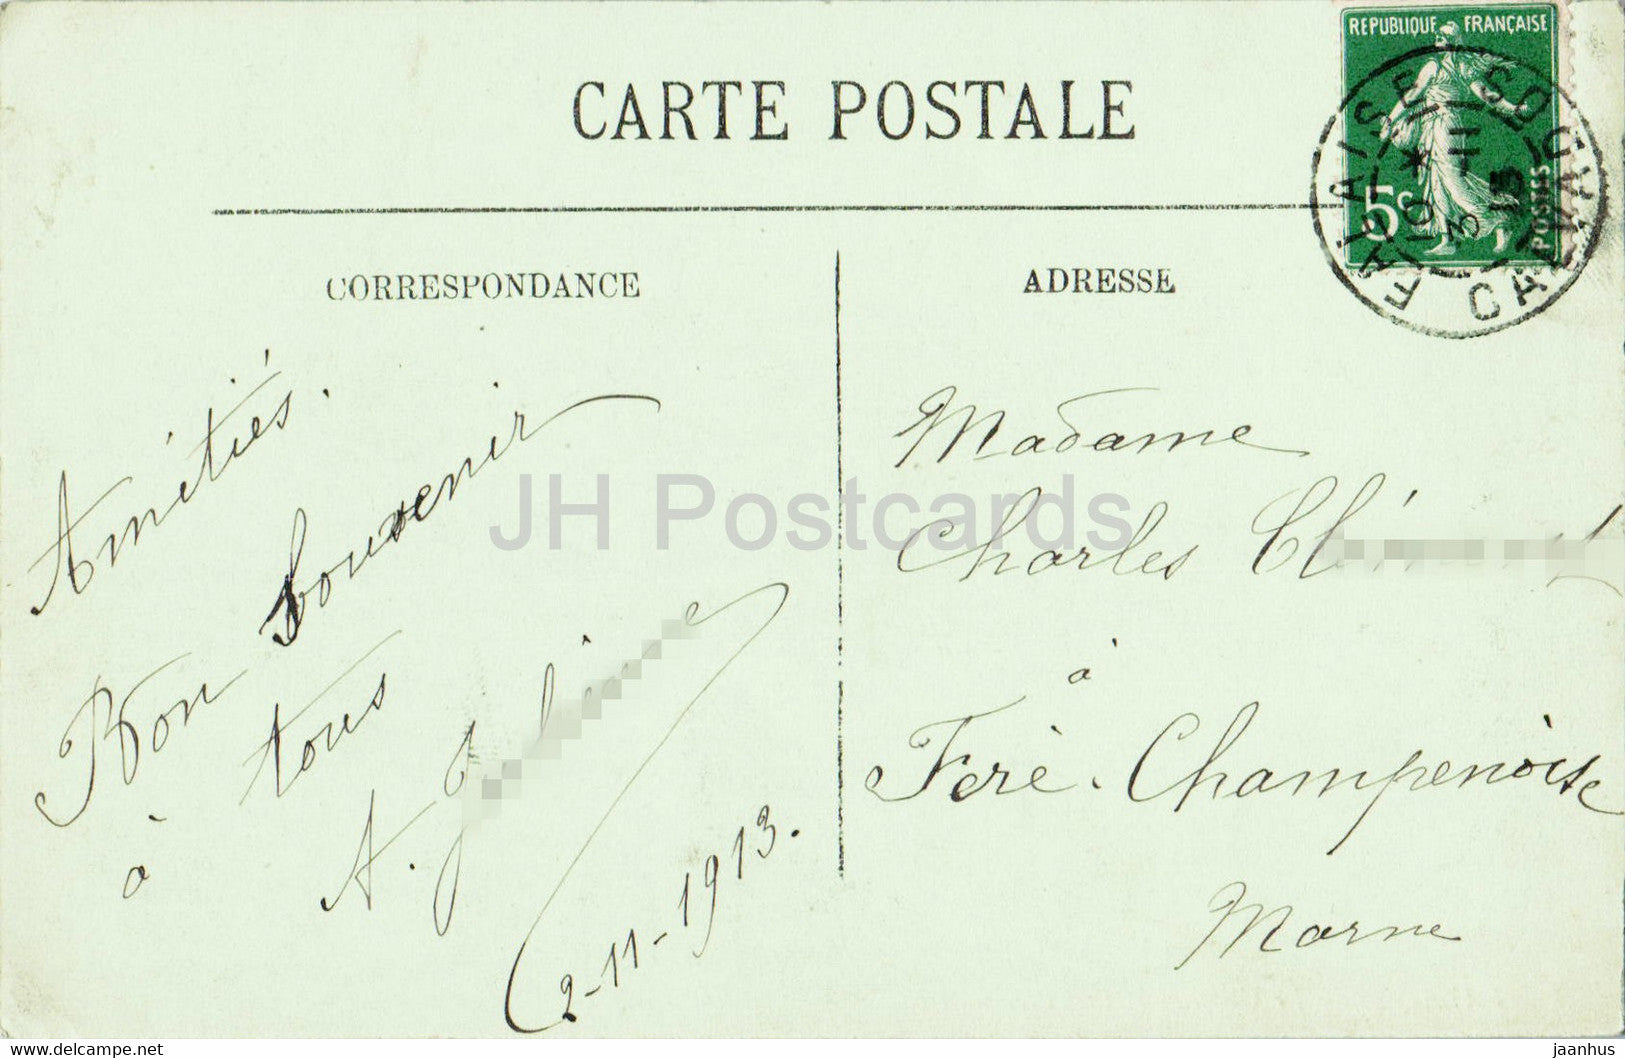 CARTE POSTALE
REPUBLIQUE FRANÇAISE
5c
POSTES
FALAISE
CALVADOS
CORRESPONDANCE
ADRESSE
Amitiés.
Bon Souvenir
à tous
A.
2-11-1913.
Madame
Charles
à
Fère-Champenoise
Marne
JH Postcards
www.delcampe.net
jaanhus